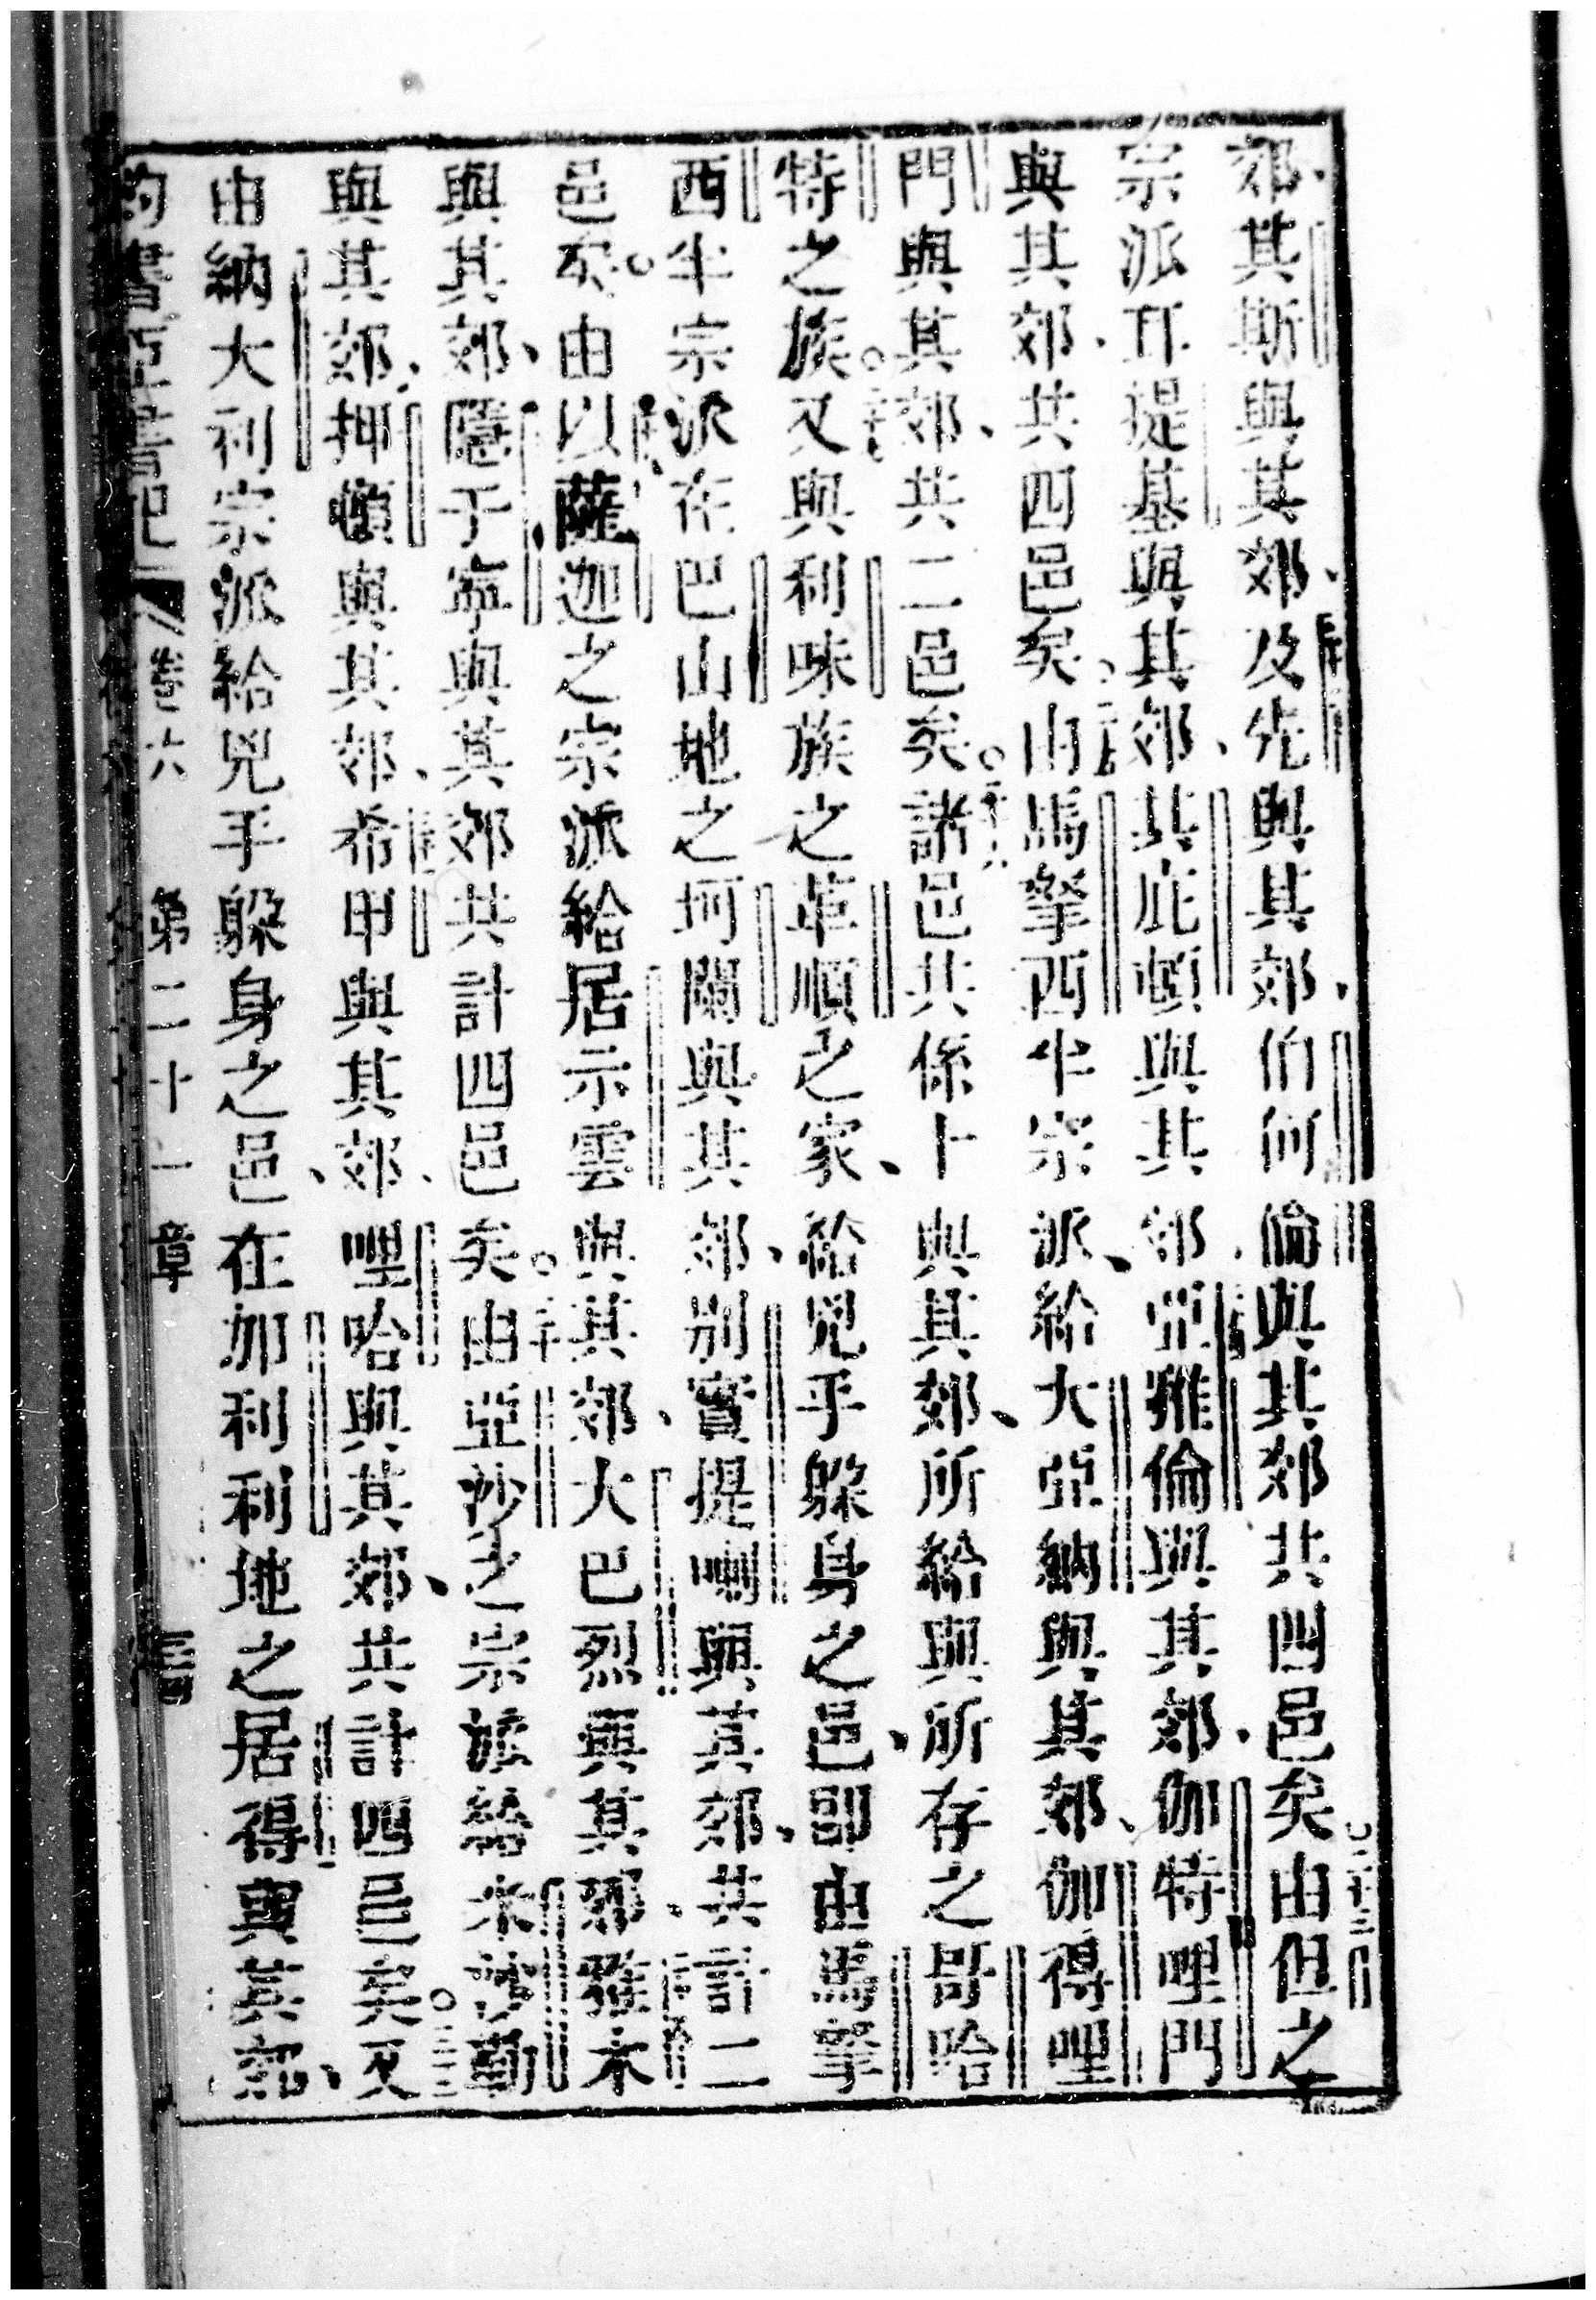 郊、其斯與其郊、及先與其郊、伯何倫與其郊共四邑矣。由但之
宗派耳提基與其郊、其庇頓與其郊、亞雅倫與其郊、伽特哩門
與其郊、共四邑矣。由馬拏西半宗派、給大亞納與其郊、伽得哩
門與其郊、共二邑矣。諸邑共係十與其郊、所給與所存之哥哈
特之族。又與利味族之革順之家、給兇手躲身之邑、即由馬拏
西半宗派在巴山地之坷闌與其郊、別實提喇與其郊、共計二
邑矣。由以薩迦之宗派給居示雲與其郊、大巴烈與其郊、耀末
與其郊、隱于寧與其郊共計四邑矣。由亞沙之宗派給米實勒
與其郊、押頓與其郊、希甲與其郊、哩哈與其郊、共計四邑矣。又
由納大利宗派給兇手躲身之邑、在加利利地之居得與其郊、
約書亞書記 卷六 第二十一章